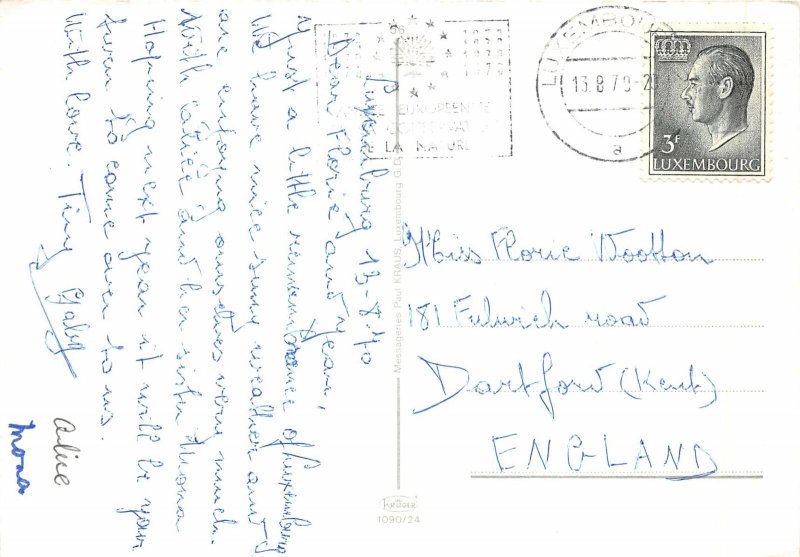 Luxemburg 13-8-70
Dear Florie and Jean,
Just a little remembrance of Luxemburg
We have nice suny weather and
are enjoying ourselves very much.
With "Alice" and her sister Mona
Hopring next year it will be your
turn to come over to us.
With love. Tiny Gaby
Alice
Mona
LUXEMBOURG
13.8.70-2
a
EUROPEENNE
CONSERVATION
LA NATURE
3F
LUXEMBOURG
Miss Florie Wootton
181 Fulwich road
Dartford (Kent)
ENGLAND
Messageries Paul KRAUS, Luxembourg G.D.
KRÜGER
1090/24